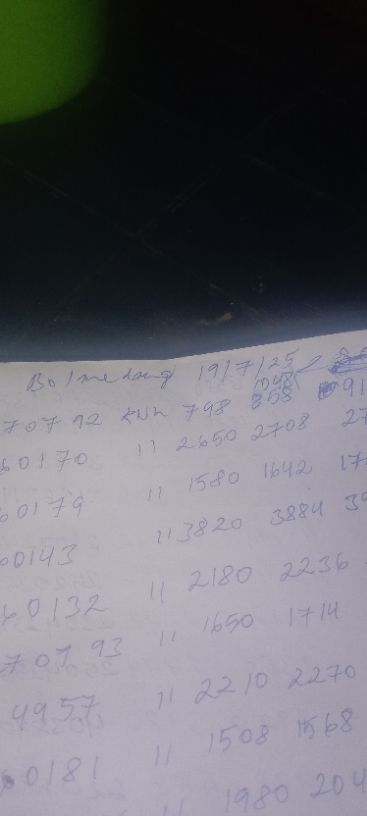 19/7/25
70792 KWh 798 858 91
60170 11 2650 2708 27
60179 11 1580 1642 17
60143 11 3820 3884 39
60132 11 2180 2236
70793 11 1650 1714
4957 11 2210 2270
60181 11 1508 1568
11 1980 204